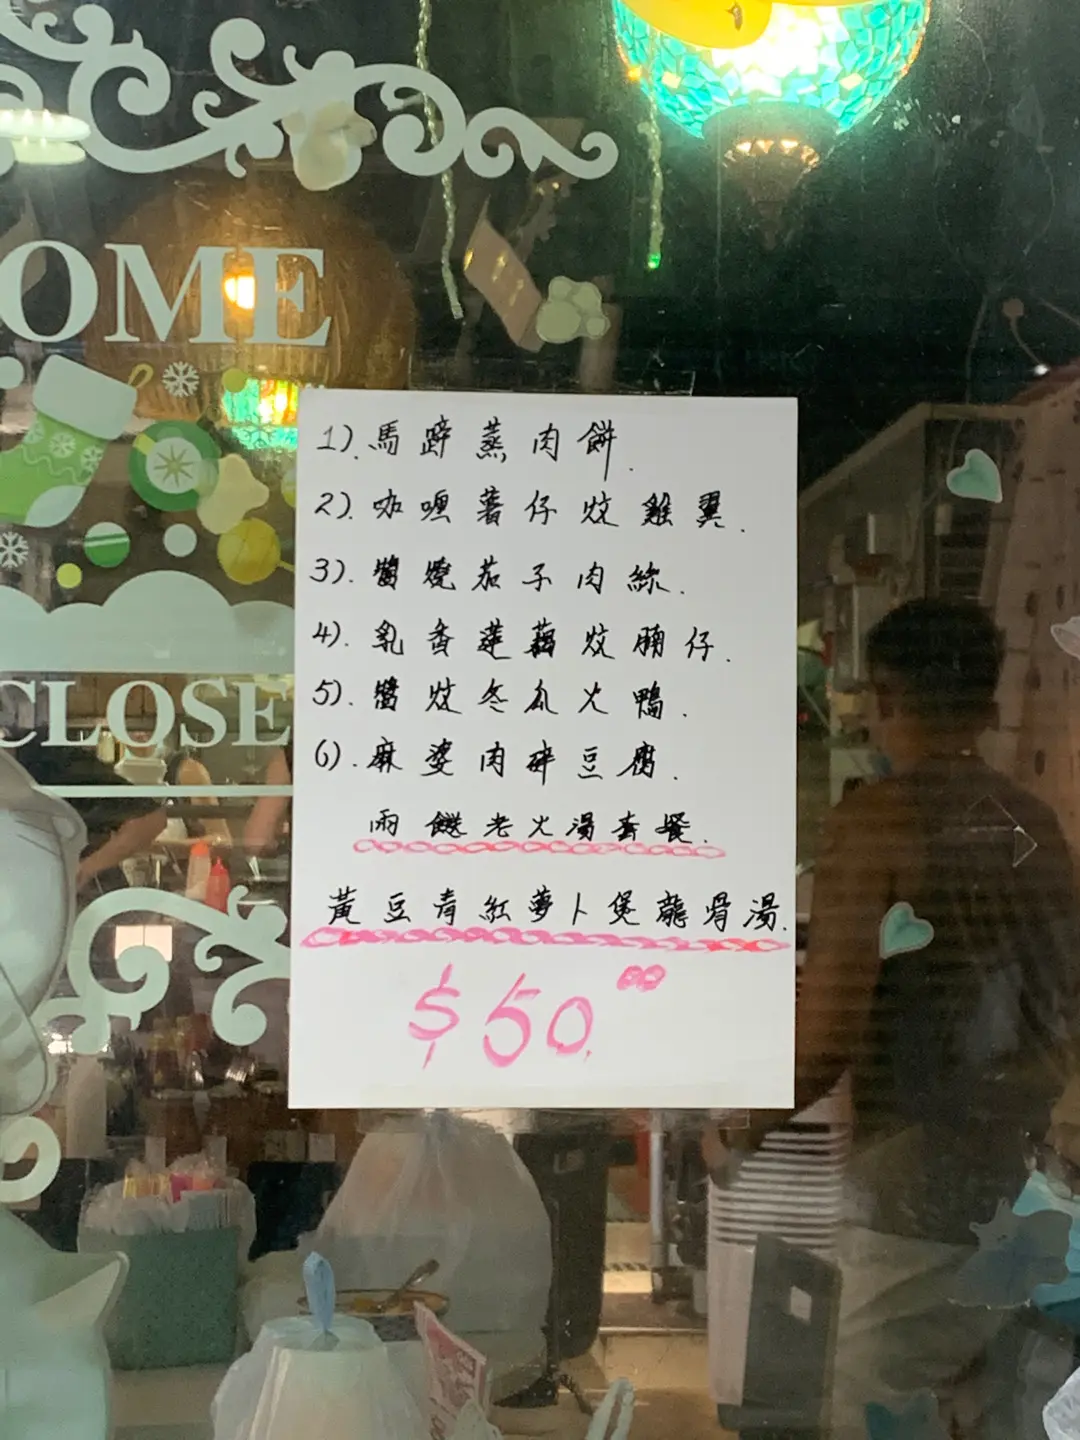 OME
CLOSE
1). 馬蹄蒸肉餅.
2). 咖喱薯仔炆雞翼.
3). 醬燒茄子肉絲.
4). 乳香蓮藕炆腩仔.
5). 醬炆冬瓜火鴨.
6). 麻婆肉碎豆腐.
兩餸老火湯套餐.
黃豆青紅蘿蔔煲龍骨湯.
$50.00